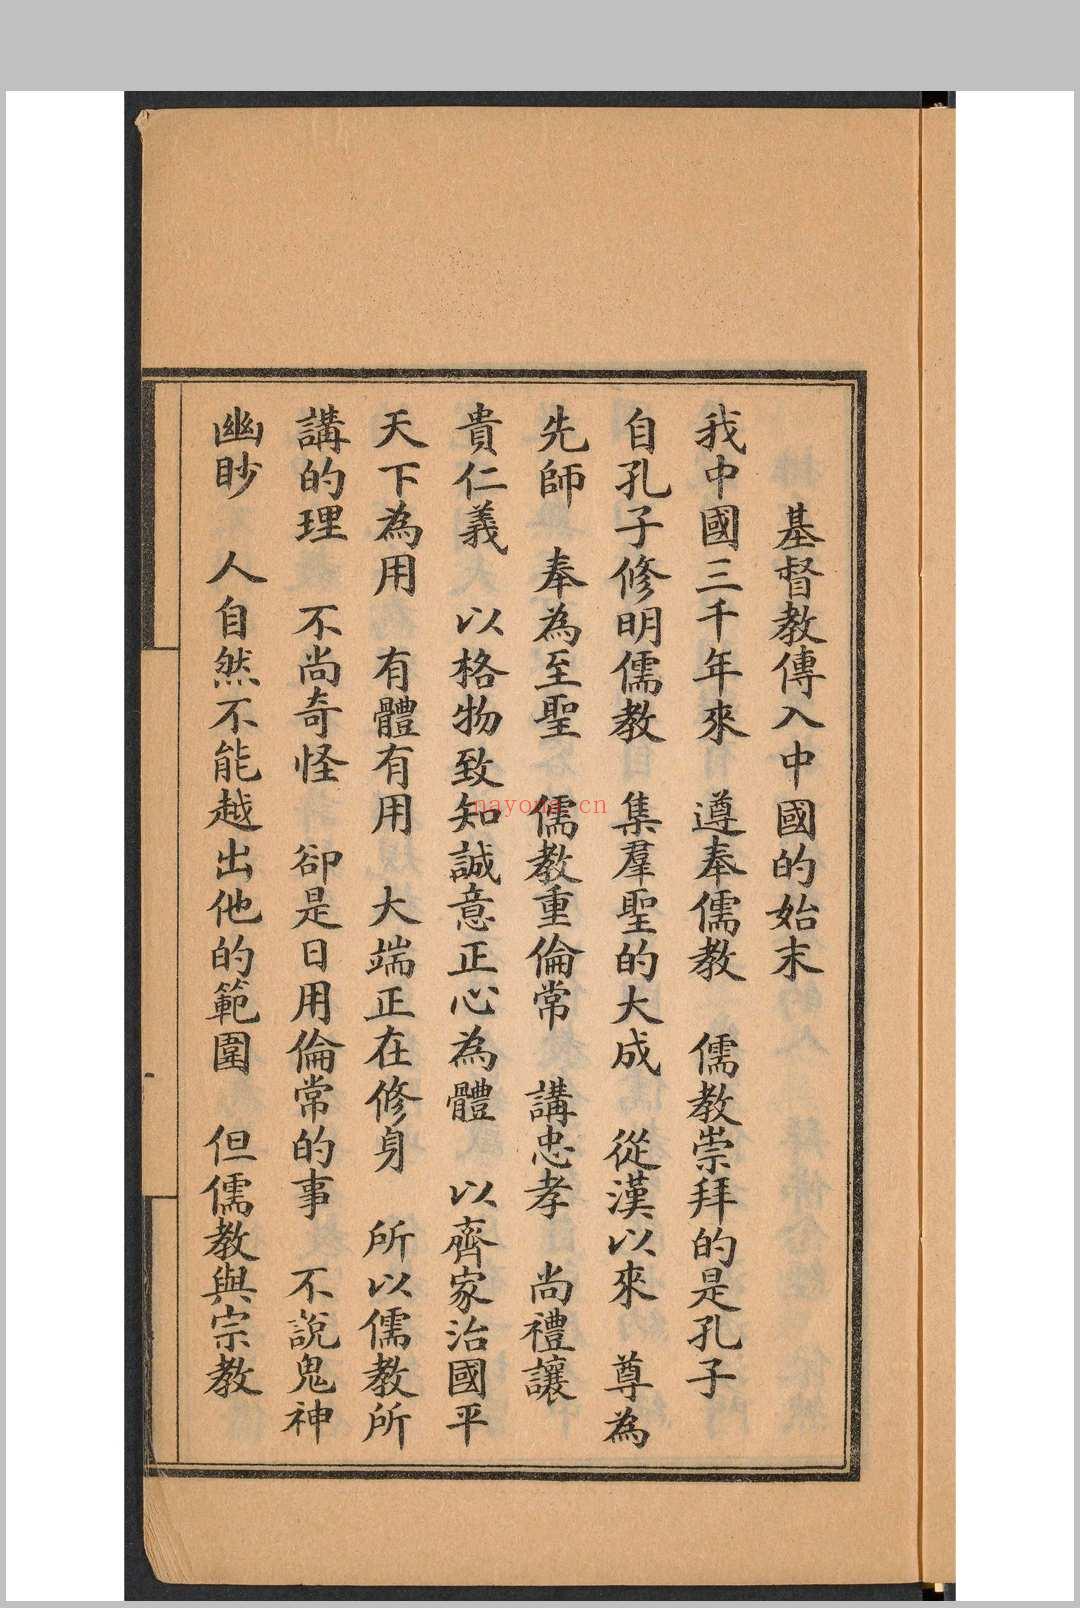 基督教傳入中國的始末
我中國三千年來　遵奉儒教　儒教崇拜的是孔子
自孔子修明儒教　集羣聖的大成　從漢以來　尊為
先師　奉為至聖　儒教重倫常　講忠孝　尚禮讓
貴仁義　以格物致知誠意正心為體　以齊家治國平
天下為用　有體有用　大端正在修身　所以儒教所
講的理　不尚奇怪　卻是日用倫常的事　不說鬼神
幽眇　人自然不能越出他的範圍　但儒教與宗教
nayona.cn